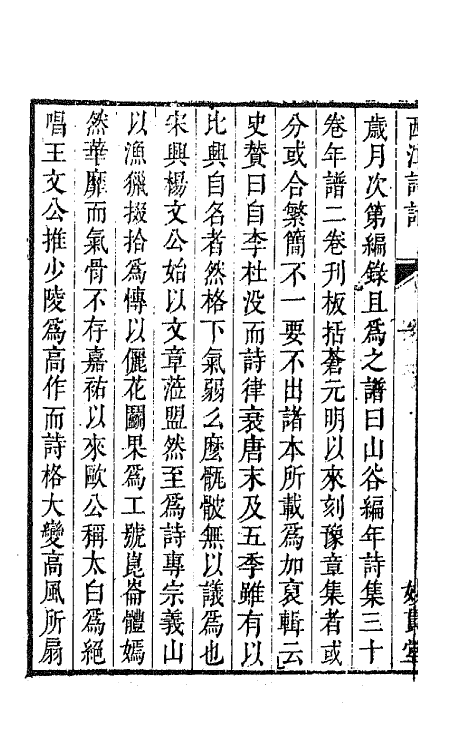 西江詩話
歲月次第編錄且爲之譜曰山谷編年詩集三十
卷年譜二卷刊板括蒼元明以來刻豫章集者或
分或合繁簡不一要不出諸本所載爲加裒輯云
史贊曰自李杜没而詩律衰唐末及五季雖有以
比興自名者然格下氣弱么麽骩骳無以議爲也
宋興楊文公始以文章蒞盟然至爲詩專宗義山
以漁獵掇拾爲傳以儷花鬭果爲工號崑崙體嫣
然華靡而氣骨不存嘉祐以來歐公稱太白爲絕
唱王文公推少陵爲高作而詩格大變高風所扇